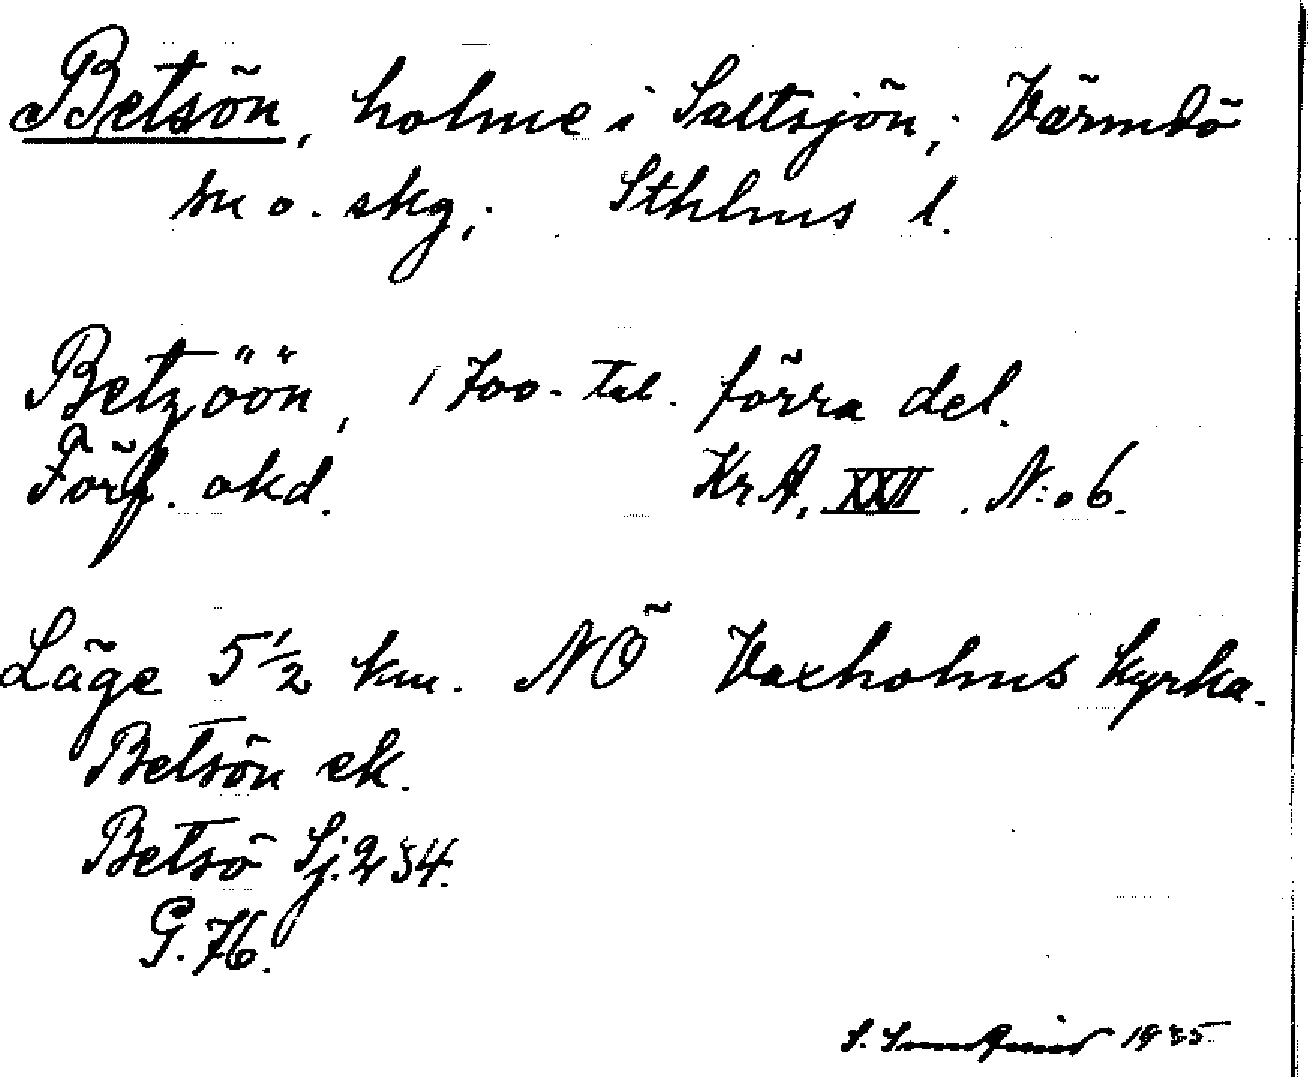 Betsön, holme i Saltsjön; Värmdö
sn o. skg; Sthlms l.
Betzöön, 1700-tal. förra del.
Förf. okd. KrA, XXII. N:o 6.
Läge 5 1/2 km. NÖ Vaxholms kyrka.
Betsön ek.
Betsö Sj. 234.
G. 76.
S. 1935